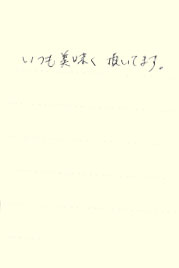 いつも美味く頂いてます。